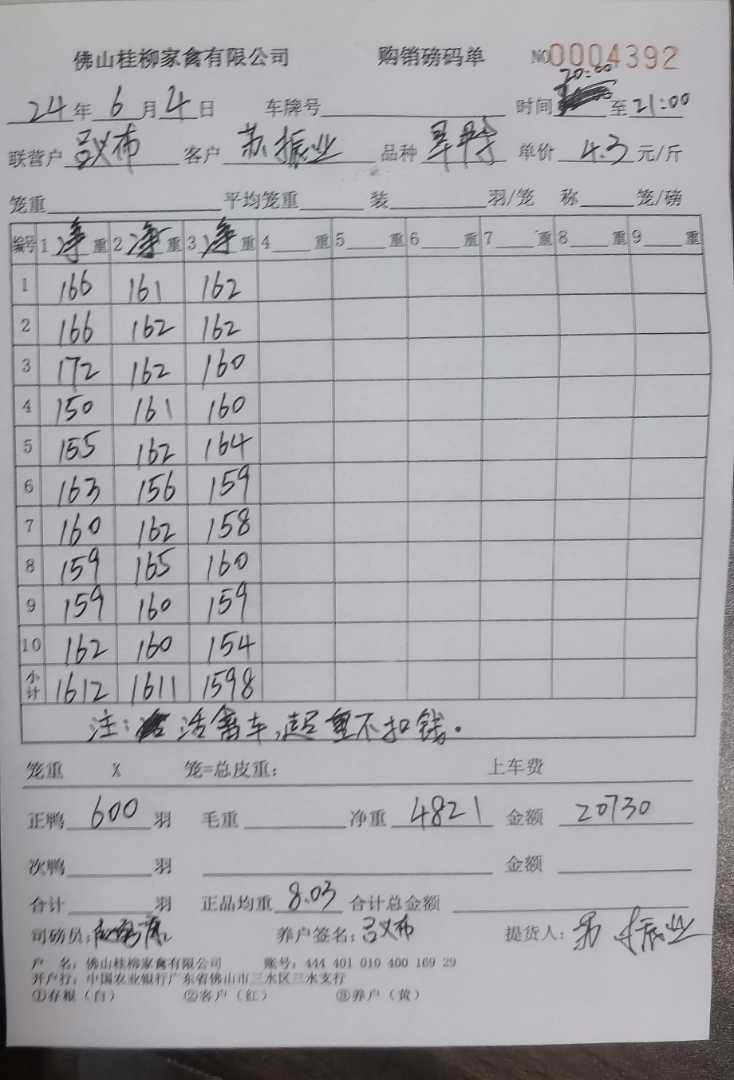 佛山桂柳家禽有限公司 购销磅码单 NO 0004392
20:00
24年6月4日 车牌号 时间 至21:00
联营户 吕义布 客户 苏振业 品种 单价 4.3 元/斤
笼重 平均笼重 装 羽/笼 称 笼/磅
编号 1 净重 2 净重 3 净重 4 重 5 重 6 重 7 重 8 重 9 重
1 166 161 162
2 166 162 162
3 172 162 160
4 150 161 160
5 155 162 164
6 163 156 159
7 160 162 158
8 159 165 160
9 159 160 159
10 162 160 154
小计 1612 1611 1598
注: 活禽车,超重不扣钱.
笼重 X 笼=总皮重: 上车费
正鸭 600 羽 毛重 净重 4821 金额 20730
次鸭 羽 金额
合计 羽 正品均重 8.03 合计总金额
司磅员: 养户签名: 吕义布 提货人: 苏振业
户 名: 佛山桂柳家禽有限公司 账号: 444 401 010 400 169 29
开户行: 中国农业银行广东省佛山市三水区三水支行
①存根(白) ②客户(红) ③养户(黄)